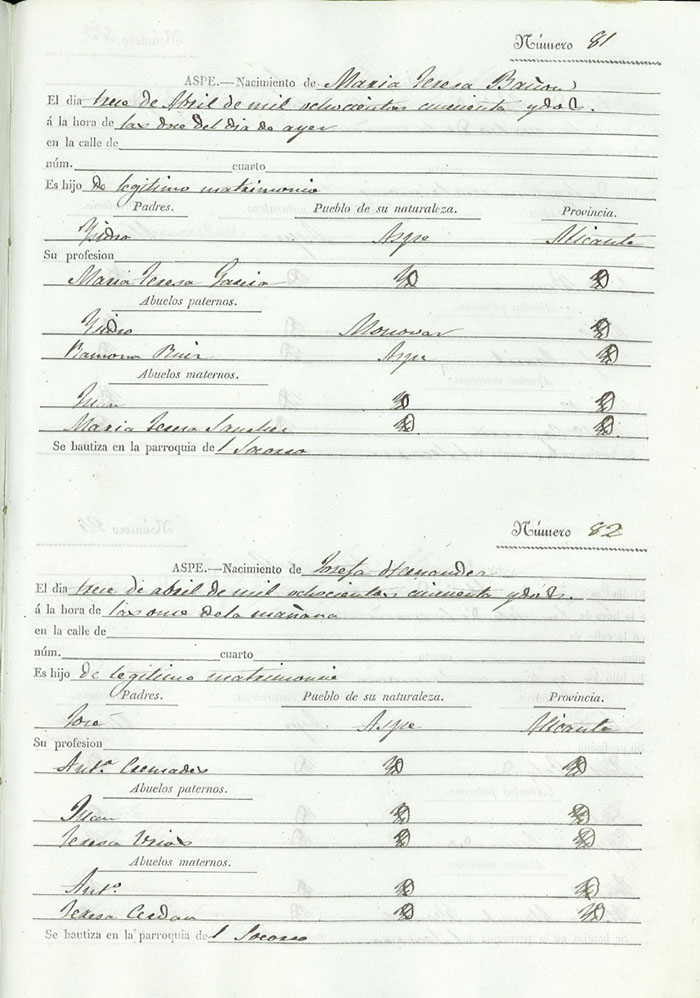 Número 81
ASPE.—Nacimiento de Maria Teresa Bañon
El dia trece de Abril de mil ochocientos cincuenta y dos.
á la hora de las doce del dia de ayer
en la calle de
núm. cuarto
Es hijo de legitimo matrimonio
Padres. Pueblo de su naturaleza. Provincia.
Ysidro Aspe Alicante
Su profesion
Maria Teresa Garcia Yd Yd
Abuelos paternos.
Ysidro Monovar Yd
Ramona Ruiz Aspe Yd
Abuelos maternos.
Juan Yd Yd
Maria Teresa Sanchez Yd Yd
Se bautiza en la parroquia del Socorro
Número 82
ASPE.—Nacimiento de Josefa Hernandez
El dia trece de abril de mil ochocientos cincuenta y dos.
á la hora de las once de la mañana
en la calle de
núm. cuarto
Es hijo de legitimo matrimonio
Padres. Pueblo de su naturaleza. Provincia.
Jose Aspe Alicante
Su profesion
Ant.ª Cremades Yd Yd
Abuelos paternos.
Juan Yd Yd
Teresa Urios Yd Yd
Abuelos maternos.
Ant.º Yd Yd
Teresa Cerdan Yd Yd
Se bautiza en la parroquia del Socorro